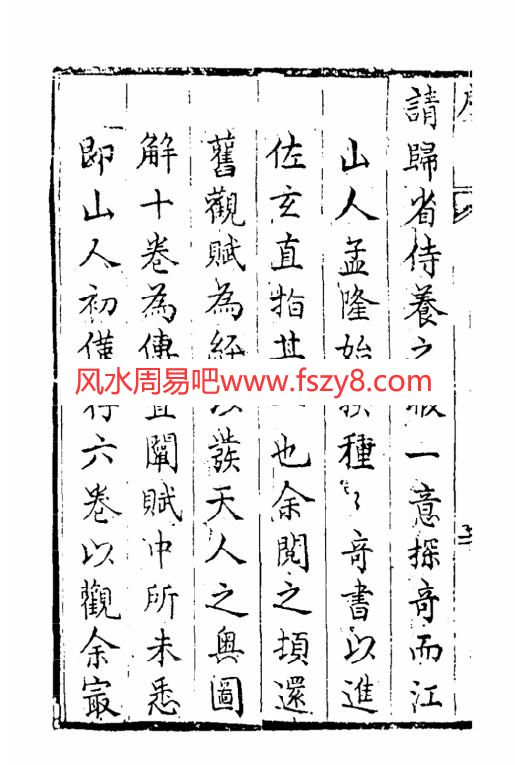 請歸省侍養之暇一意探奇而江
山人孟隆始 種々奇書以進
佐玄直指其一也余閱之頃還
舊觀賦為經 以發天人之奧圖
解十卷為傳 直闡賦中所未悉
即山人初僅 得六卷以觀余冣
风水周易吧www.fszy8.com